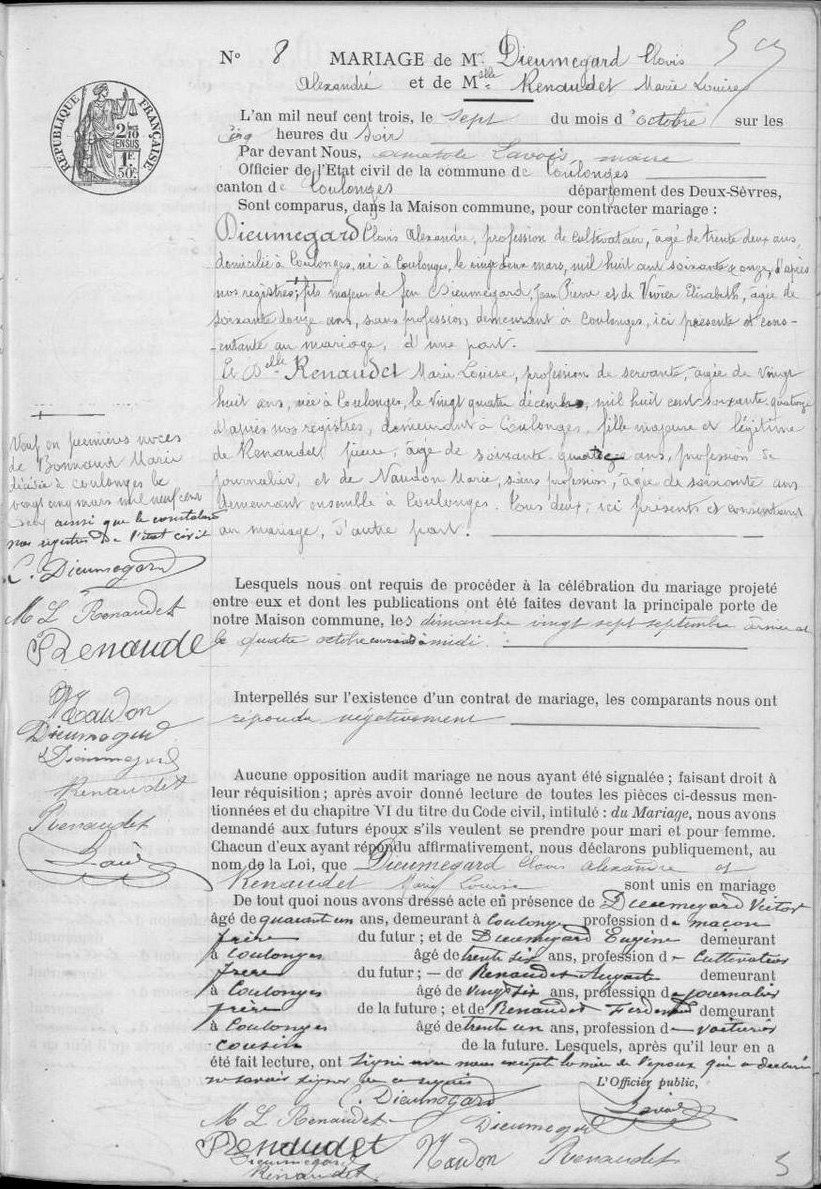 N° 8 MARIAGE de Mr. Dieumegard Clovis
Alexandre et de Melle Renaudet Marie Louise
RÉPUBLIQUE FRANÇAISE
2/10 EN SUS
1F 50c
L'an mil neuf cent trois, le sept du mois d'octobre sur les
cinq heures du soir
Par devant Nous, Lavois maire
Officier de l'Etat civil de la commune de Coulonges
canton de Coulonges département des Deux-Sèvres,
Sont comparus, dans la Maison commune, pour contracter mariage :
Dieumegard Clovis Alexandre, profession de cultivateur, âgé de trente deux ans,
domicilié à Coulonges, né à Coulonges, le vingt deux mars, mil huit cent soixante & onze, d'après
nos registres; fils majeur de feu Dieumegard, Jean Pierre et de Vivier Elisabeth, âgée de
soixante douze ans, sans profession, demeurant à Coulonges, ici présente et cons-
-entante au mariage, d'une part.
Et Delle Renaudet Marie Louise, profession de servante, âgée de vingt
huit ans, née à Coulonges, le vingt quatre décembre, mil huit cent soixante quatorze
d'après nos registres, demeurant à Coulonges, fille majeure et légitime
de Renaudet Pierre, âgé de soixante quatorze ans, profession de
journalier, et de Naudon Marie, sans profession, âgée de soixante ans
demeurant ensemble à Coulonges. Tous deux, ici présents et consentant
au mariage, d'autre part.
Veuf en premières noces
de Bonnaud Marie
décédée à Coulonges le
vingt cinq mars mil neuf cent
ainsi que le constatent
nos registres de l'état civil
C. Dieumegard
M L Renaudet
Renaudet
Naudon
Dieumegard
Dieumegard
Renaudet
Renaudet
Lavois
Lesquels nous ont requis de procéder à la célébration du mariage projeté
entre eux et dont les publications ont été faites devant la principale porte de
notre Maison commune, les dimanche vingt sept septembre dernier et
le quatre octobre courant à midi.
Interpellés sur l'existence d'un contrat de mariage, les comparants nous ont
répondu négativement
Aucune opposition audit mariage ne nous ayant été signalée ; faisant droit à
leur réquisition ; après avoir donné lecture de toutes les pièces ci-dessus men-
tionnées et du chapitre VI du titre du Code civil, intitulé : du Mariage, nous avons
demandé aux futurs époux s'ils veulent se prendre pour mari et pour femme.
Chacun d'eux ayant répondu affirmativement, nous déclarons publiquement, au
nom de la Loi, que Dieumegard Clovis Alexandre et
Renaudet Marie Louise sont unis en mariage
De tout quoi nous avons dressé acte en présence de Dieumegard Victor
âgé de quarante un ans, demeurant à Coulonges profession de maçon
frère du futur ; et de Dieumegard Eugène demeurant
à Coulonges âgé de trente six ans, profession de cultivateur
frère du futur ; — de Renaudet Auguste demeurant
à Coulonges âgé de vingt six ans, profession de journalier
frère de la future ; et de Renaudet Ferdinand demeurant
à Coulonges âgé de trente un ans, profession de voiturier
cousin de la future. Lesquels, après qu'il leur en a
été fait lecture, ont signé avec nous excepté la mère de l'époux qui a déclaré
ne savoir signer de ce requis
L'Officier public,
C. Dieumegard
Lavois
M L Renaudet
Dieumegard
Renaudet
Naudon
Renaudet
Dieumegard
Renaudet